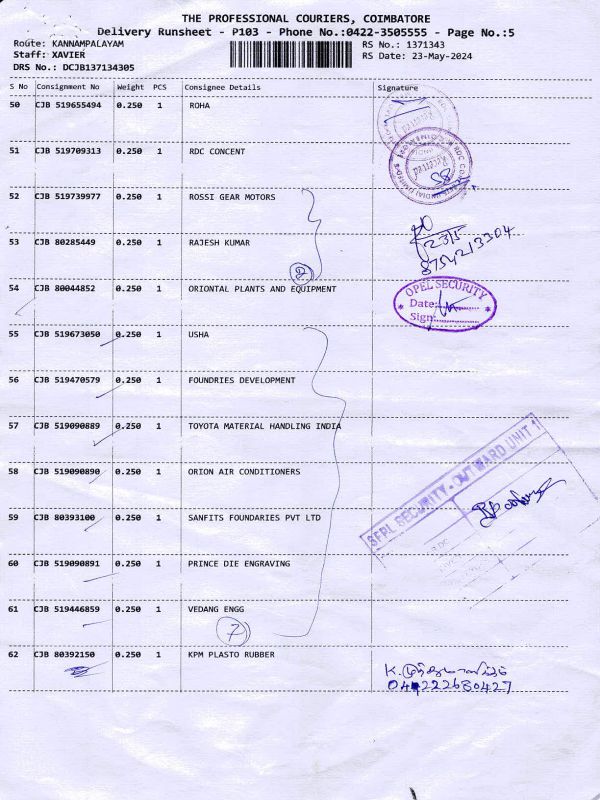 THE PROFESSIONAL COURIERS, COIMBATORE
Delivery Runsheet - P103 - Phone No.:0422-3505555 - Page No.:5
Route: KANNAMPALAYAM RS No.: 1371343
Staff: XAVIER RS Date: 23-May-2024
DRS No.: DCJB137134305
S No Consignment No Weight PCS Consignee Details Signature
50 CJB 519655494 0.250 1 ROHA
51 CJB 519709313 0.250 1 RDC CONCENT
52 CJB 519739977 0.250 1 ROSSI GEAR MOTORS
53 CJB 80285449 0.250 1 RAJESH KUMAR
23/5
8754213304
2
54 CJB 80044852 0.250 1 ORIONTAL PLANTS AND EQUIPMENT
OPEL SECURITY
Date:
Sign:
55 CJB 519673050 0.250 1 USHA
56 CJB 519470579 0.250 1 FOUNDRIES DEVELOPMENT
57 CJB 519090889 0.250 1 TOYOTA MATERIAL HANDLING INDIA
58 CJB 519090890 0.250 1 ORION AIR CONDITIONERS
SFPL SECURITY - OUTWARD UNIT 1
59 CJB 80393100 0.250 1 SANFITS FOUNDARIES PVT LTD
60 CJB 519090891 0.250 1 PRINCE DIE ENGRAVING
61 CJB 519446859 0.250 1 VEDANG ENGG
7
62 CJB 80392150 0.250 1 KPM PLASTO RUBBER